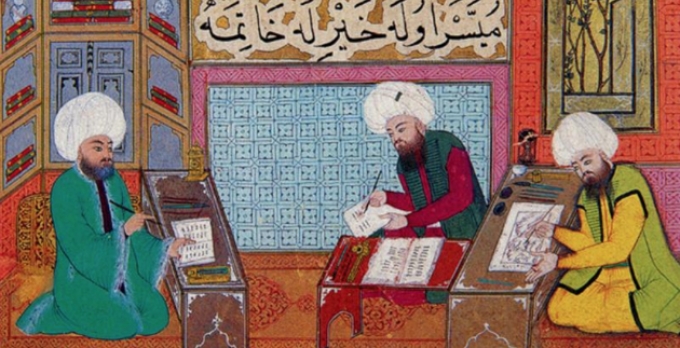 مُيَسَّرْ اوُلَه خَيْرْ لَه خَاتِمَه